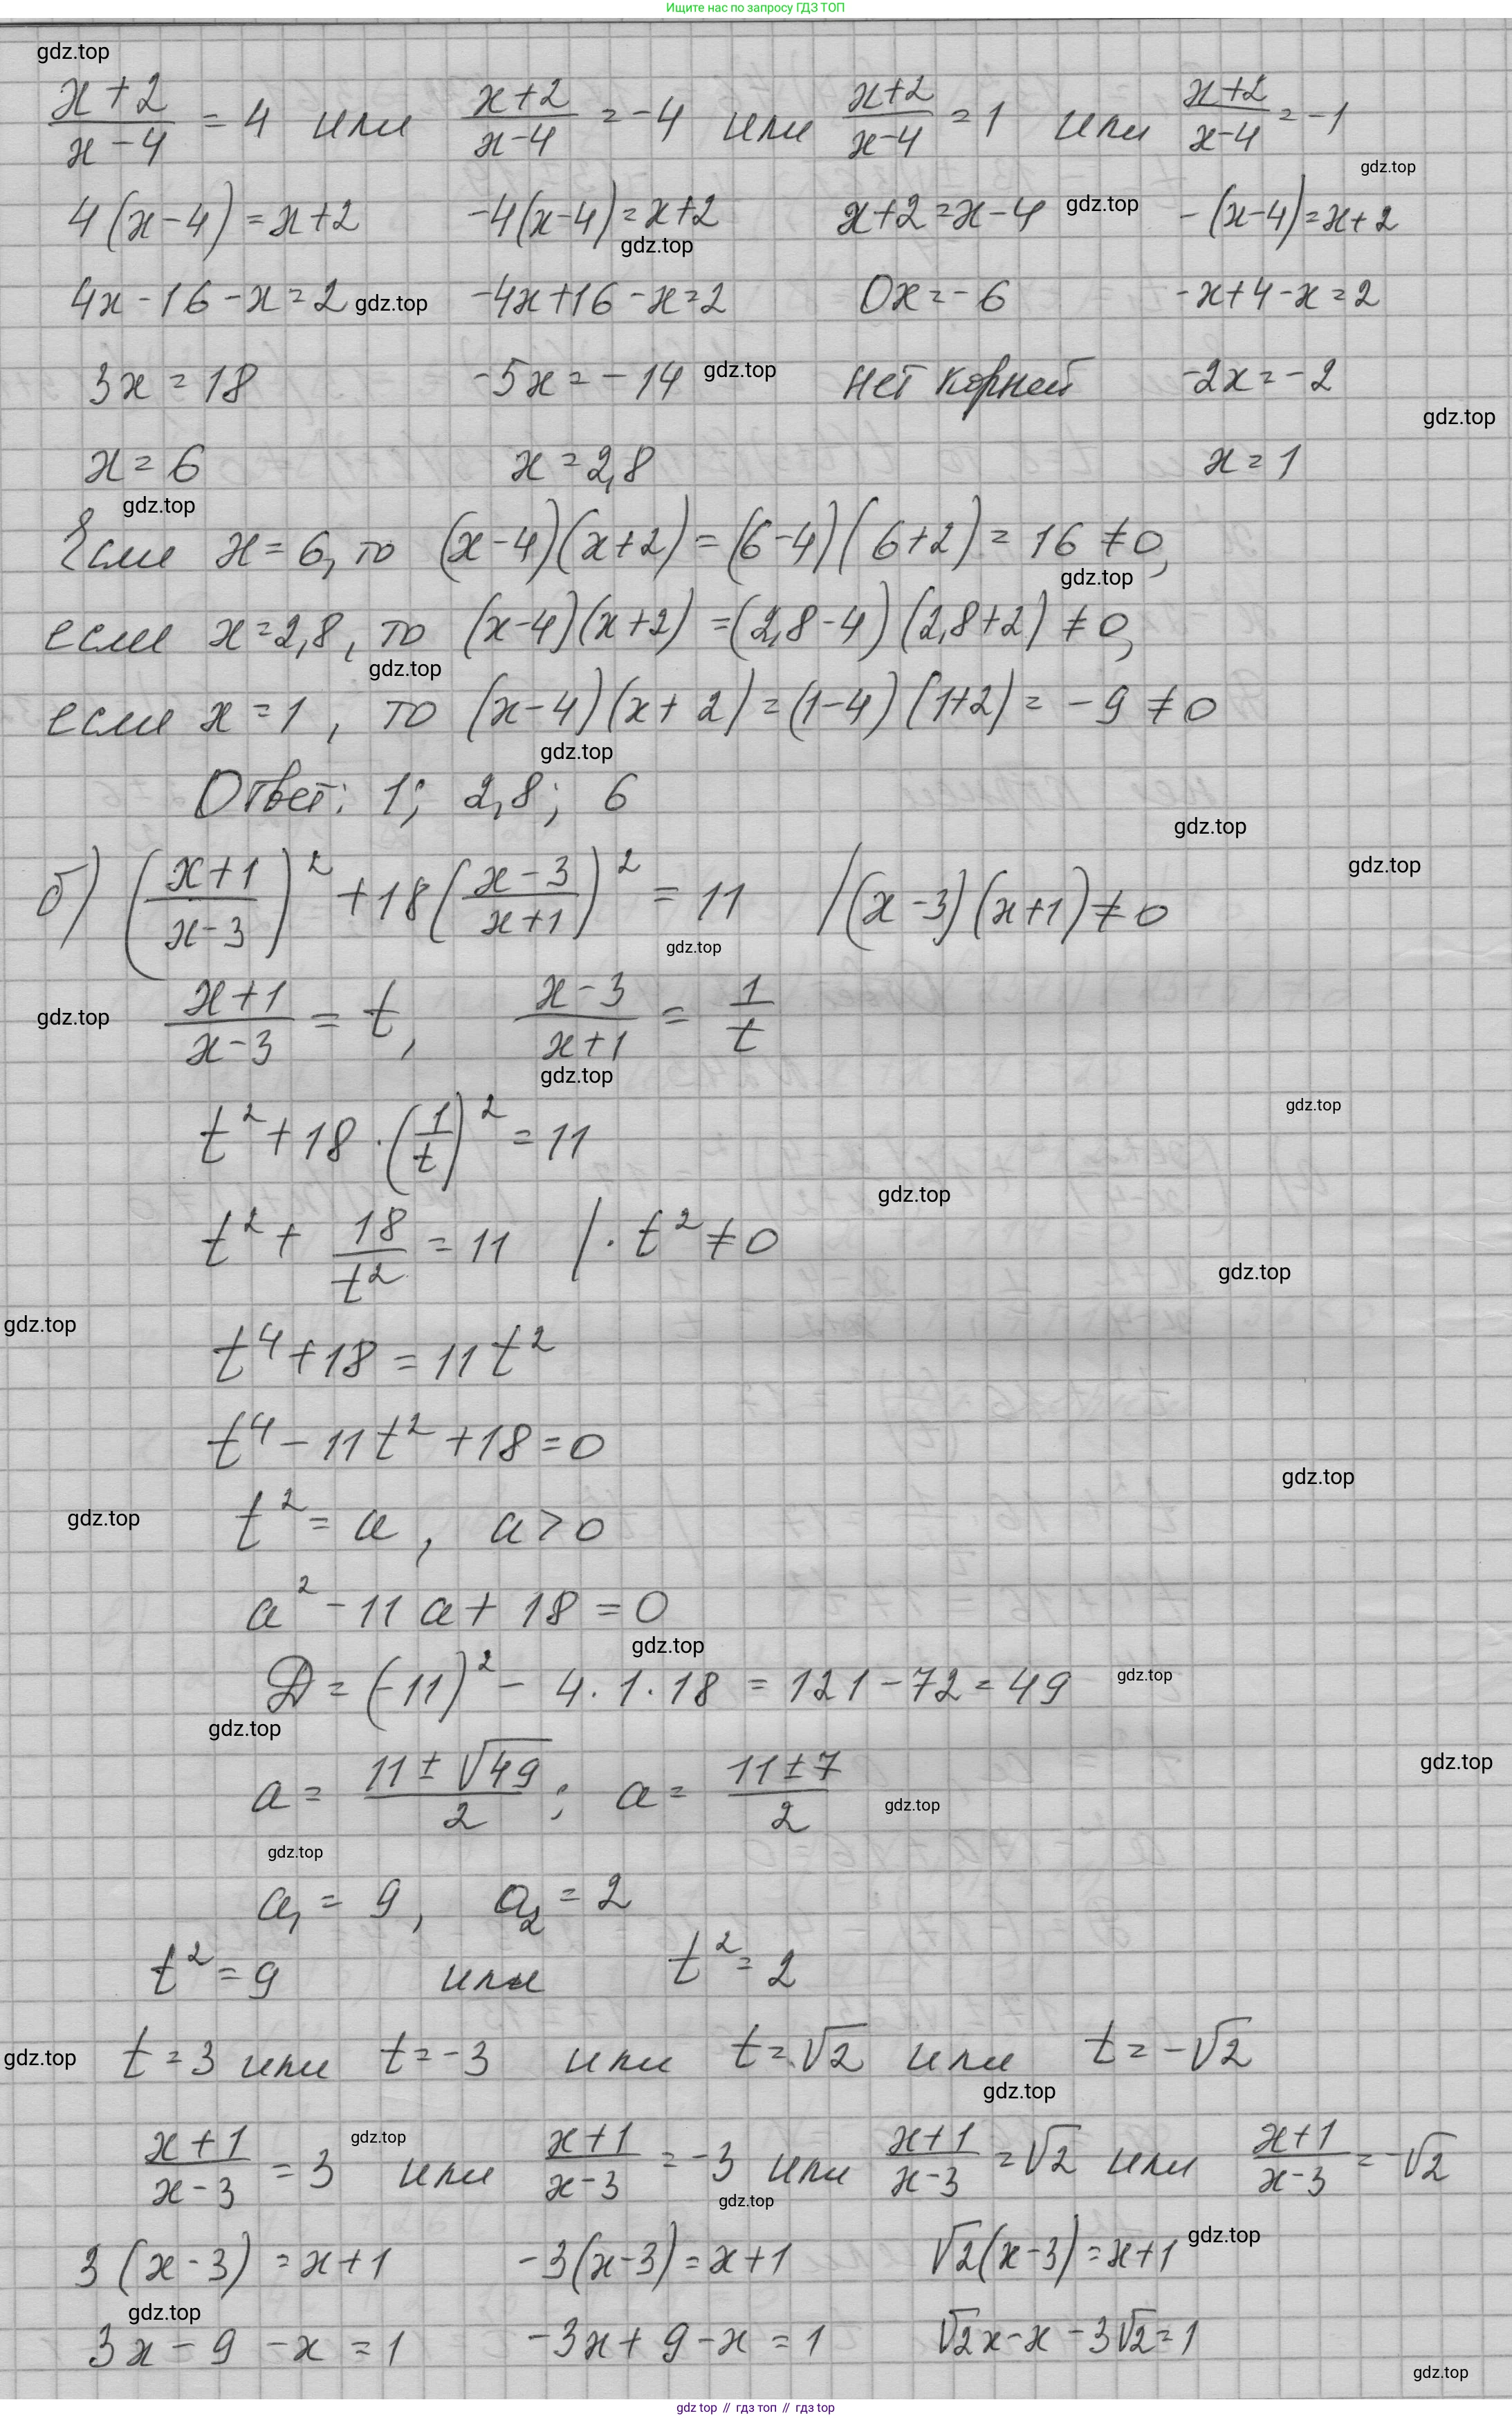 Ищите нас по запросу ГДЗ ТОП
gdz.top
(x+2)/(x-4) = 4 или (x+2)/(x-4) = -4 или (x+2)/(x-4) = 1 или (x+2)/(x-4) = -1
gdz.top
4(x-4) = x+2 -4(x-4) = x+2 x+2 = x-4 gdz.top -(x-4) = x+2
gdz.top
4x-16-x=2 gdz.top -4x+16-x=2 0x=-6 -x+4-x=2
3x=18 -5x=-14 gdz.top нет корней -2x=-2
gdz.top
x=6 x=2,8 x=1
gdz.top
Если x=6, то (x-4)(x+2) = (6-4)(6+2) = 16 ≠ 0,
gdz.top
если x=2,8, то (x-4)(x+2) = (2,8-4)(2,8+2) ≠ 0,
gdz.top
если x=1, то (x-4)(x+2) = (1-4)(1+2) = -9 ≠ 0
gdz.top
Ответ: 1; 2,8; 6
gdz.top
gdz.top
б) ((x+1)/(x-3))² + 18((x-3)/(x+1))² = 11 /(x-3)(x+1) ≠ 0
gdz.top
gdz.top (x+1)/(x-3) = t, (x-3)/(x+1) = 1/t
gdz.top
gdz.top
t² + 18·(1/t)² = 11
gdz.top
t² + 18/t² = 11 /·t² ≠ 0
gdz.top
gdz.top
t⁴+18 = 11t²
t⁴-11t²+18=0
gdz.top
gdz.top t² = a, a>0
a²-11a+18=0
gdz.top
D = (-11)² - 4·1·18 = 121-72 = 49 gdz.top
gdz.top
gdz.top
a = (11±√49)/2; a = (11±7)/2 gdz.top
gdz.top
a₁ = 9, a₂ = 2
t² = 9 или t² = 2
gdz.top t=3 или t=-3 или t=√2 или t=-√2
gdz.top
(x+1)/(x-3) = 3 gdz.top или (x+1)/(x-3) = -3 или (x+1)/(x-3) = √2 или (x+1)/(x-3) = -√2
gdz.top
3(x-3) = x+1 -3(x-3) = x+1 √2(x-3) = x+1 gdz.top
gdz.top
3x-9-x=1 -3x+9-x=1 √2x-x-3√2=1
gdz.top
gdz top // гдз топ // gdz top